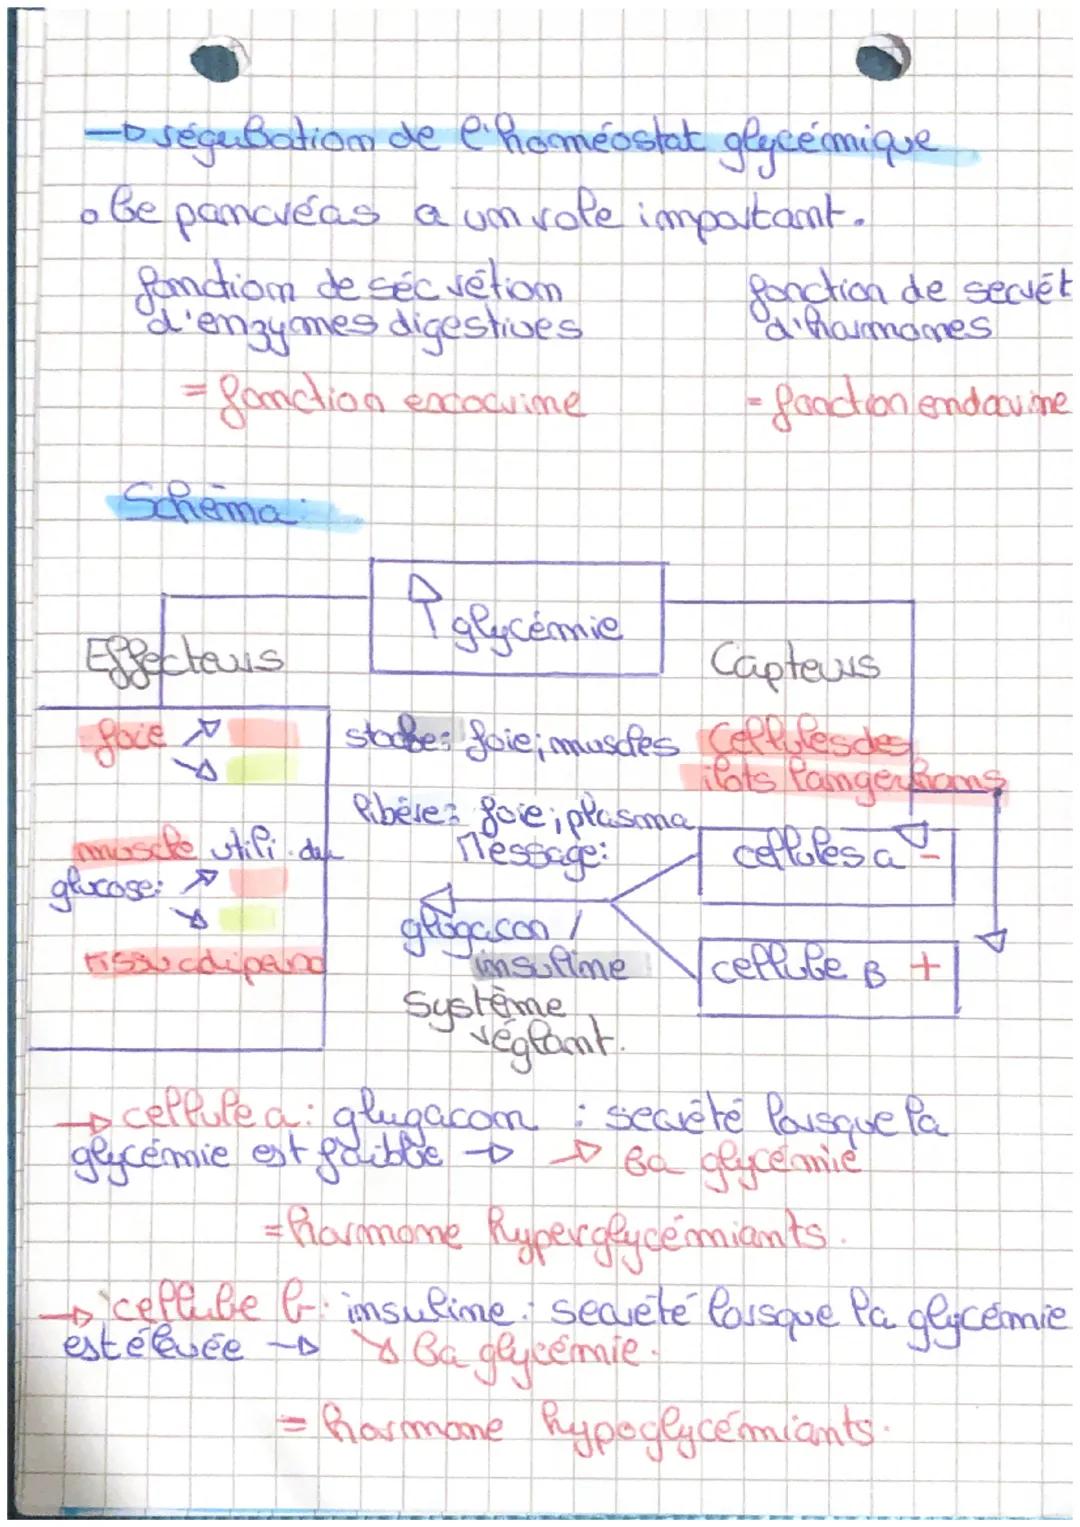 → régulation de l'homéostat glycémique
• le pancréas a un role important.
fonction de sécrétion
d'enzymes digestives
= fonction exocrine
fonction de secrét
d'hormones
= fonction endocrine
Schéma:
↑ glycémie
Effecteurs
Capteurs
foie ↗
↘
muscle utili. du
glucose: ↗
↘
tissu adipeux
stocke: foie; muscles
libère: foie; plasma
Message:
glugacon /
insuline
Système
réglant.
Cellules des
ilots langerhans
cellules a -
cellule B +
→ cellule a: glugacon : secrété lorsque la
glycémie est faible → ↗ la glycémie
= hormone hyperglycémiants.
→ cellule b: insuline: secrété lorsque la glycémie
est élevée → ↘ la glycémie.
= hormone hypoglycémiants.